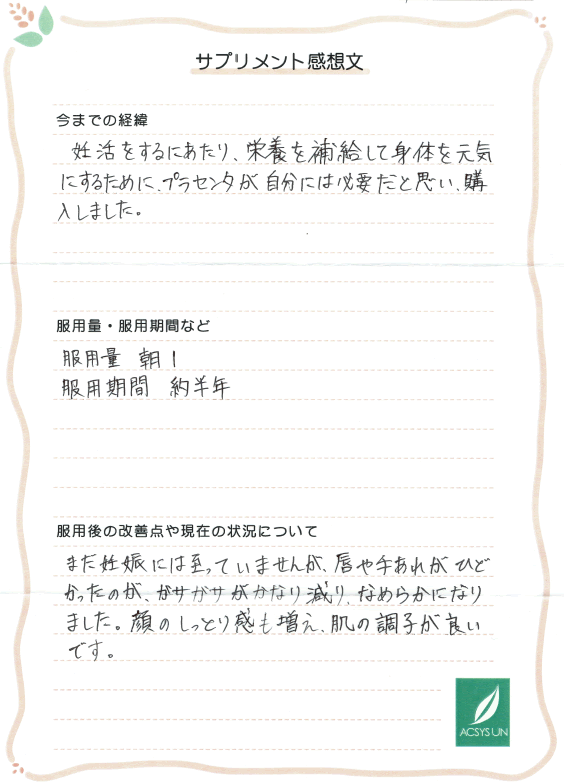 サプリメント感想文
今までの経緯
妊活をするにあたり、栄養を補給して身体を元気
にするために、プラセンタが自分には必要だと思い、購
入しました。
服用量・服用期間など
服用量 朝1
服用期間 約半年
服用後の改善点や現在の状況について
まだ妊娠には至っていませんが、唇や手あれがひど
かったのが、ガサガサがかなり減り、なめらかになり
ました。顔のしっとり感も増え、肌の調子が良い
です。
ACSYSUN